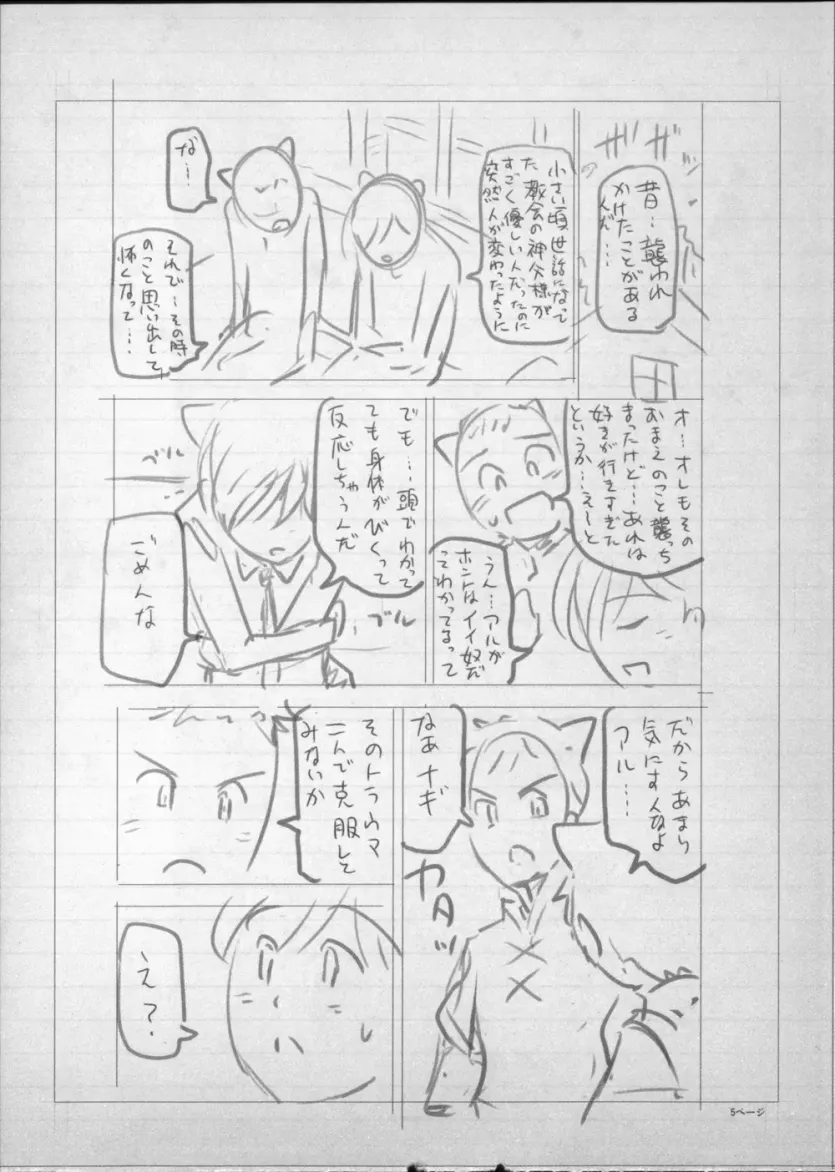 ザザザ
昔…襲われ
かけたことがある
んだ……
小さい頃世話になって
た教会の神父様が
すごく優しい人だったのに
突然人が変わったように
な…
それで…その時
のこと思い出して
怖くなって……
オ…オレもその
おまえのこと襲っち
まったけど…あれは
好きが行きすぎた
というか…えーと
うん…アルが
ホントはイイ奴だ
ってわかってるって
でも…頭でわかって
ても身体がびくって
反応しちゃうんだ
ブル
ブル
ごめんな
だからあまり
気にすんなよ
アル……
なあナギ
ガタッ
そのトラウマ
二人で克服して
みないか
え?
5ページ